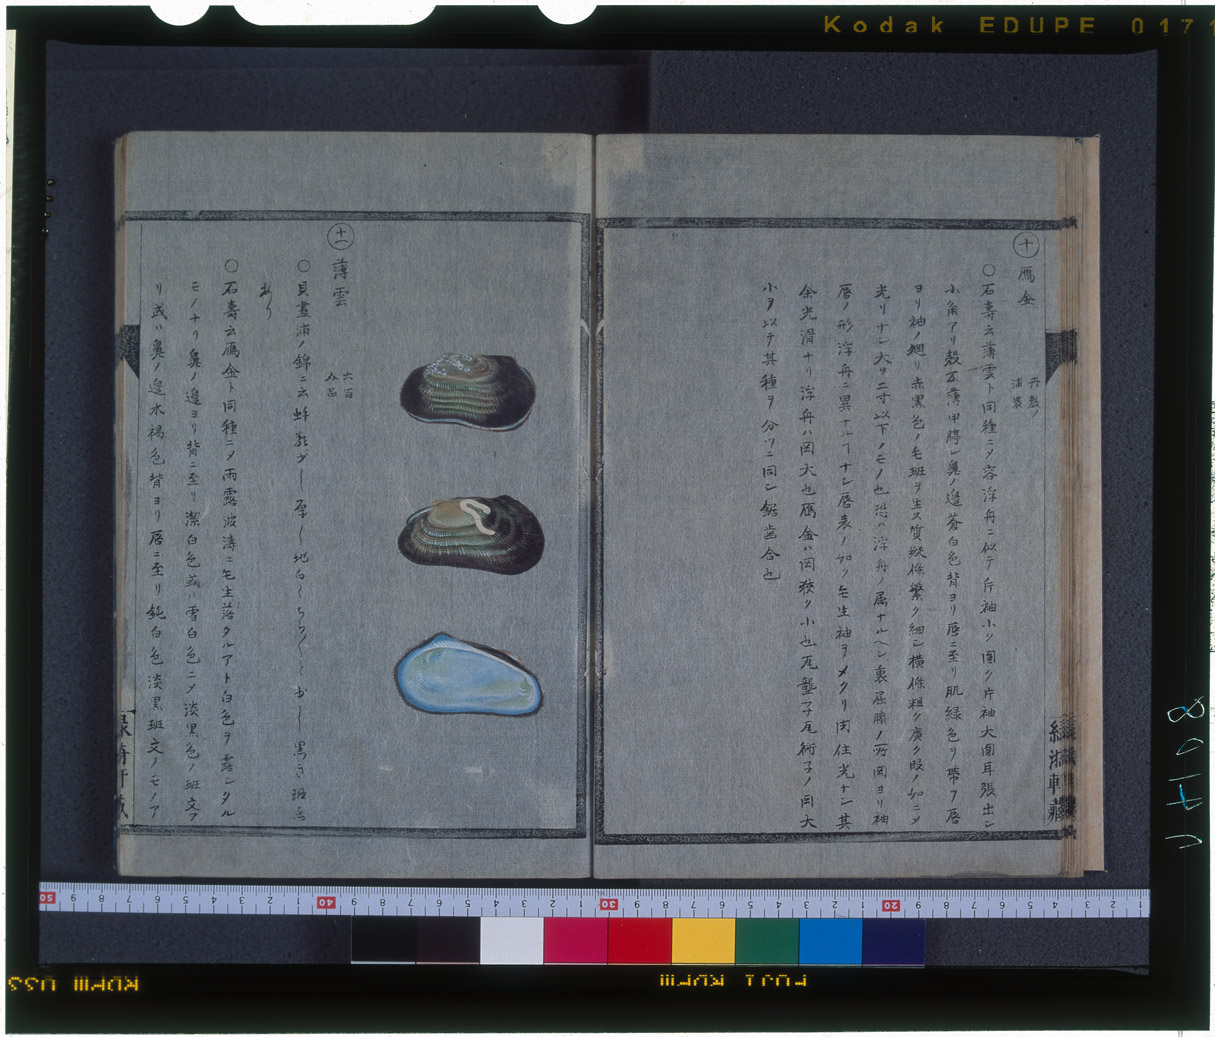 Kodak EDUPE 0171
十 鴈金
丹敷ノ
浦裏
○石壽云薄雲ト同種ニメ容浮舟ニ似テ片袖小ク圍ク片袖大圍耳張出シ
小角アリ殻至薄甲 鼻ノ邊蒼白色背ヨリ唇ニ至リ肌緑色リ帯フ唇
ヨリ袖ノ廻リ赤黒色ノ毛班ヲ生ス質縦條繁ク細シ横條粗ク廣ク ノ如ニメ
光リナシ大サ二寸以下ノモノ也恐ハ浮舟ノ属ナルヘシ裏屈 ノ所岡ヨリ袖
唇ノ形浮舟ニ異ナル ナシ唇表ノ如ク毛生袖ヲメクリ肉住光ナシ其
余光滑ナリ浮舟ハ岡大也鴈金ハ岡狹ク小也瓦壟子瓦衖子ノ岡大
小ヲ以テ其種ヲ分ツニ同シ鋸歯合也
緑漪軒藏
十一 薄雲
六百
八品
○貝盡浦ノ錦ニ云蚌 少し厚し地白くちらくと少し黒き班
あり
○石壽云鴈金ト同種ニメ雨露波濤ニ毛生落タルアト白色ヲ露シタル
モノナリ鼻ノ邊ヨリ背ニ至リ潔白色或ハ雪白色ニメ淡黒色ノ班文ア
リ或ハ鼻ノ邊水褐色背ヨリ唇ニ至リ鈍白色淡黒班文ノモノア
緑漪軒藏
50 40 30 20
FUJI
8017